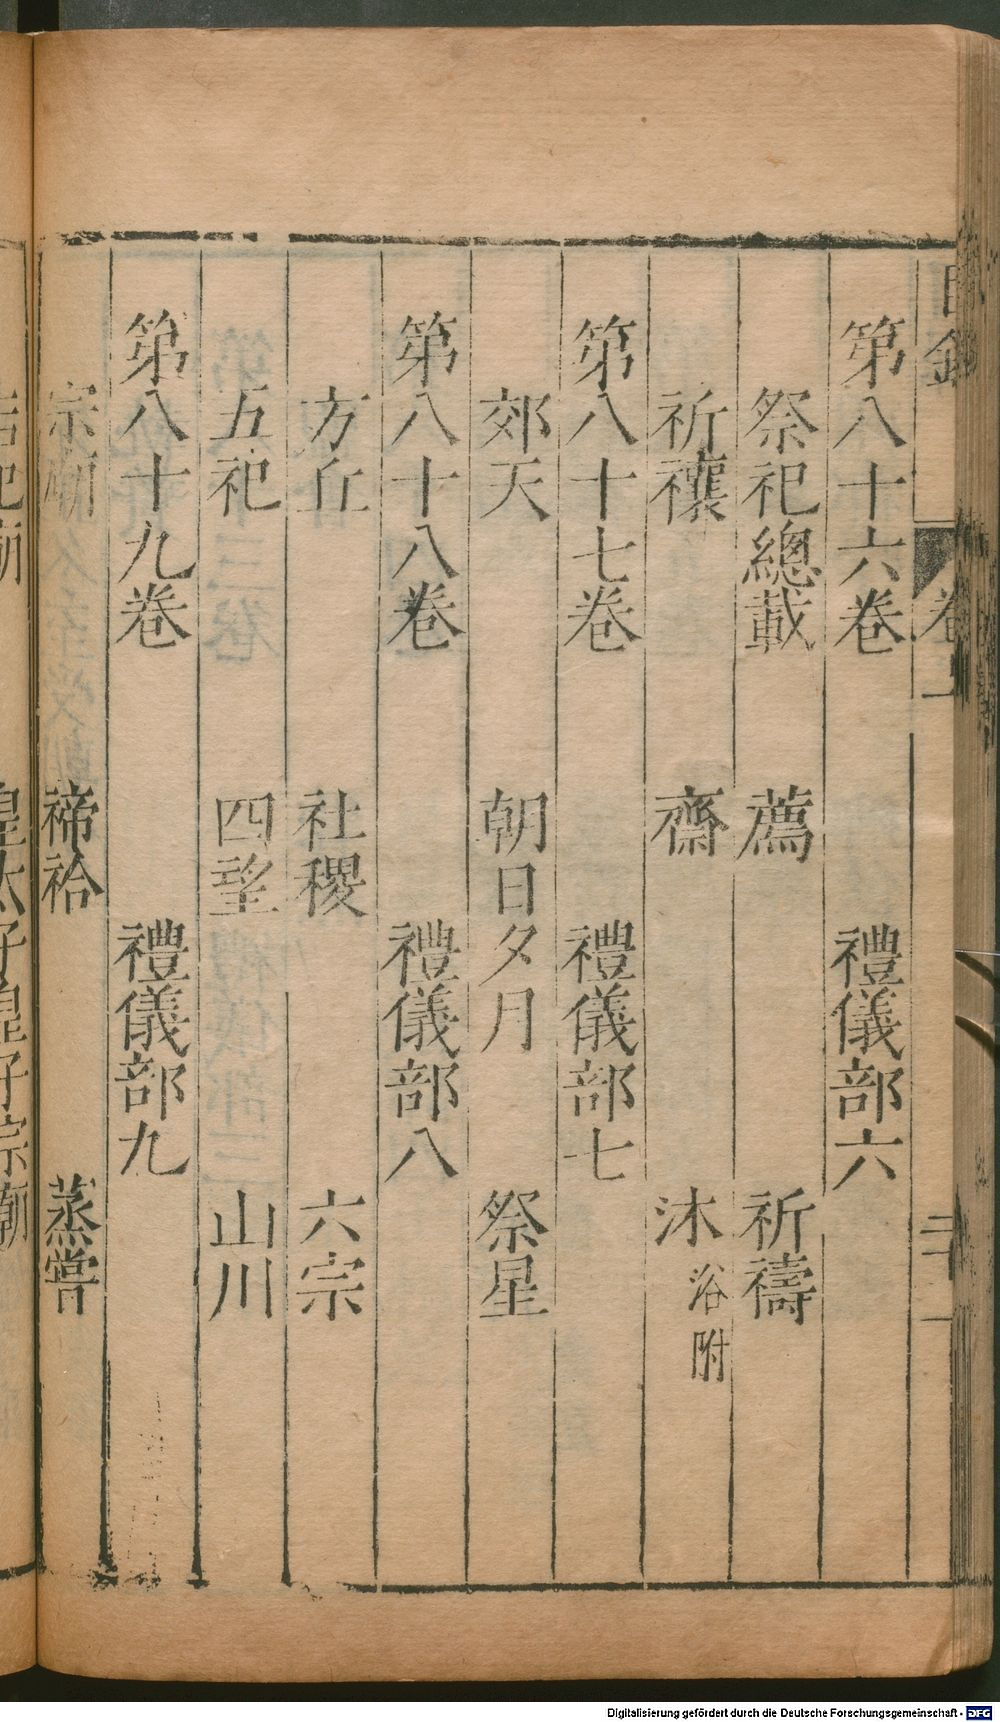 第八十六卷 禮儀部六
祭祀總載 薦 祈禱
祈禳 齋 沐浴附
第八十七卷 禮儀部七
郊天 朝日夕月 祭星
第八十八卷 禮儀部八
方丘 社稷 六宗
五祀 四望 山川
第八十九卷 禮儀部九
宗廟 禘祫 蒸嘗
Digitalisierung gefördert durch die Deutsche Forschungsgemeinschaft - DFG